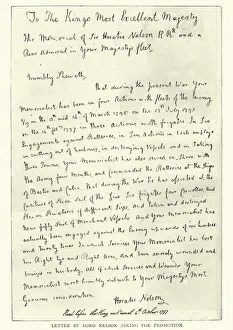 To the Kings Most Excellent Majesty
The Memorial of Sir Horatio Nelson K.B. and a
Rear Admiral in Your Majestys fleet,
Humbly Sheweth,
That during the present War Your
Memorialist has been in four Actions with Fleets of the Enemy
Viz on the 13 and 14th of March 1795 on the 13th July 1795
on the 14th Feby 1797 in three Actions with frigates In Six
Engagements against Batteries, in Ten Actions in boats employed
in cutting out of harbours, in destroying Vessels and in Taking
three Towns Your Memorialist has also served on Shore with
the Army four Months, and commanded the Batteries at the Sieges
of Bastia and Calvi. That during the War he has assisted at the
Capture of Seven Sail of the Line Six frigates four Corvettes, and
Eleven Privateers of different Sizes, and taken and destroyed
near fifty Sail of Merchant Vessels and Your Memorialist has
actually been engaged against the Enemy upwards of one hundred
and twenty times In which Services Your Memorialist has lost
his Right Eye and Right Arm, and been severely wounded and
bruised in his body. All of which Services and Wounds Your
Memorialist most humbly submits to Your Majestys Most
Gracious consideration
Horatio Nelson
October 1797
LETTER BY LORD NELSON ASKING FOR PROMOTION.